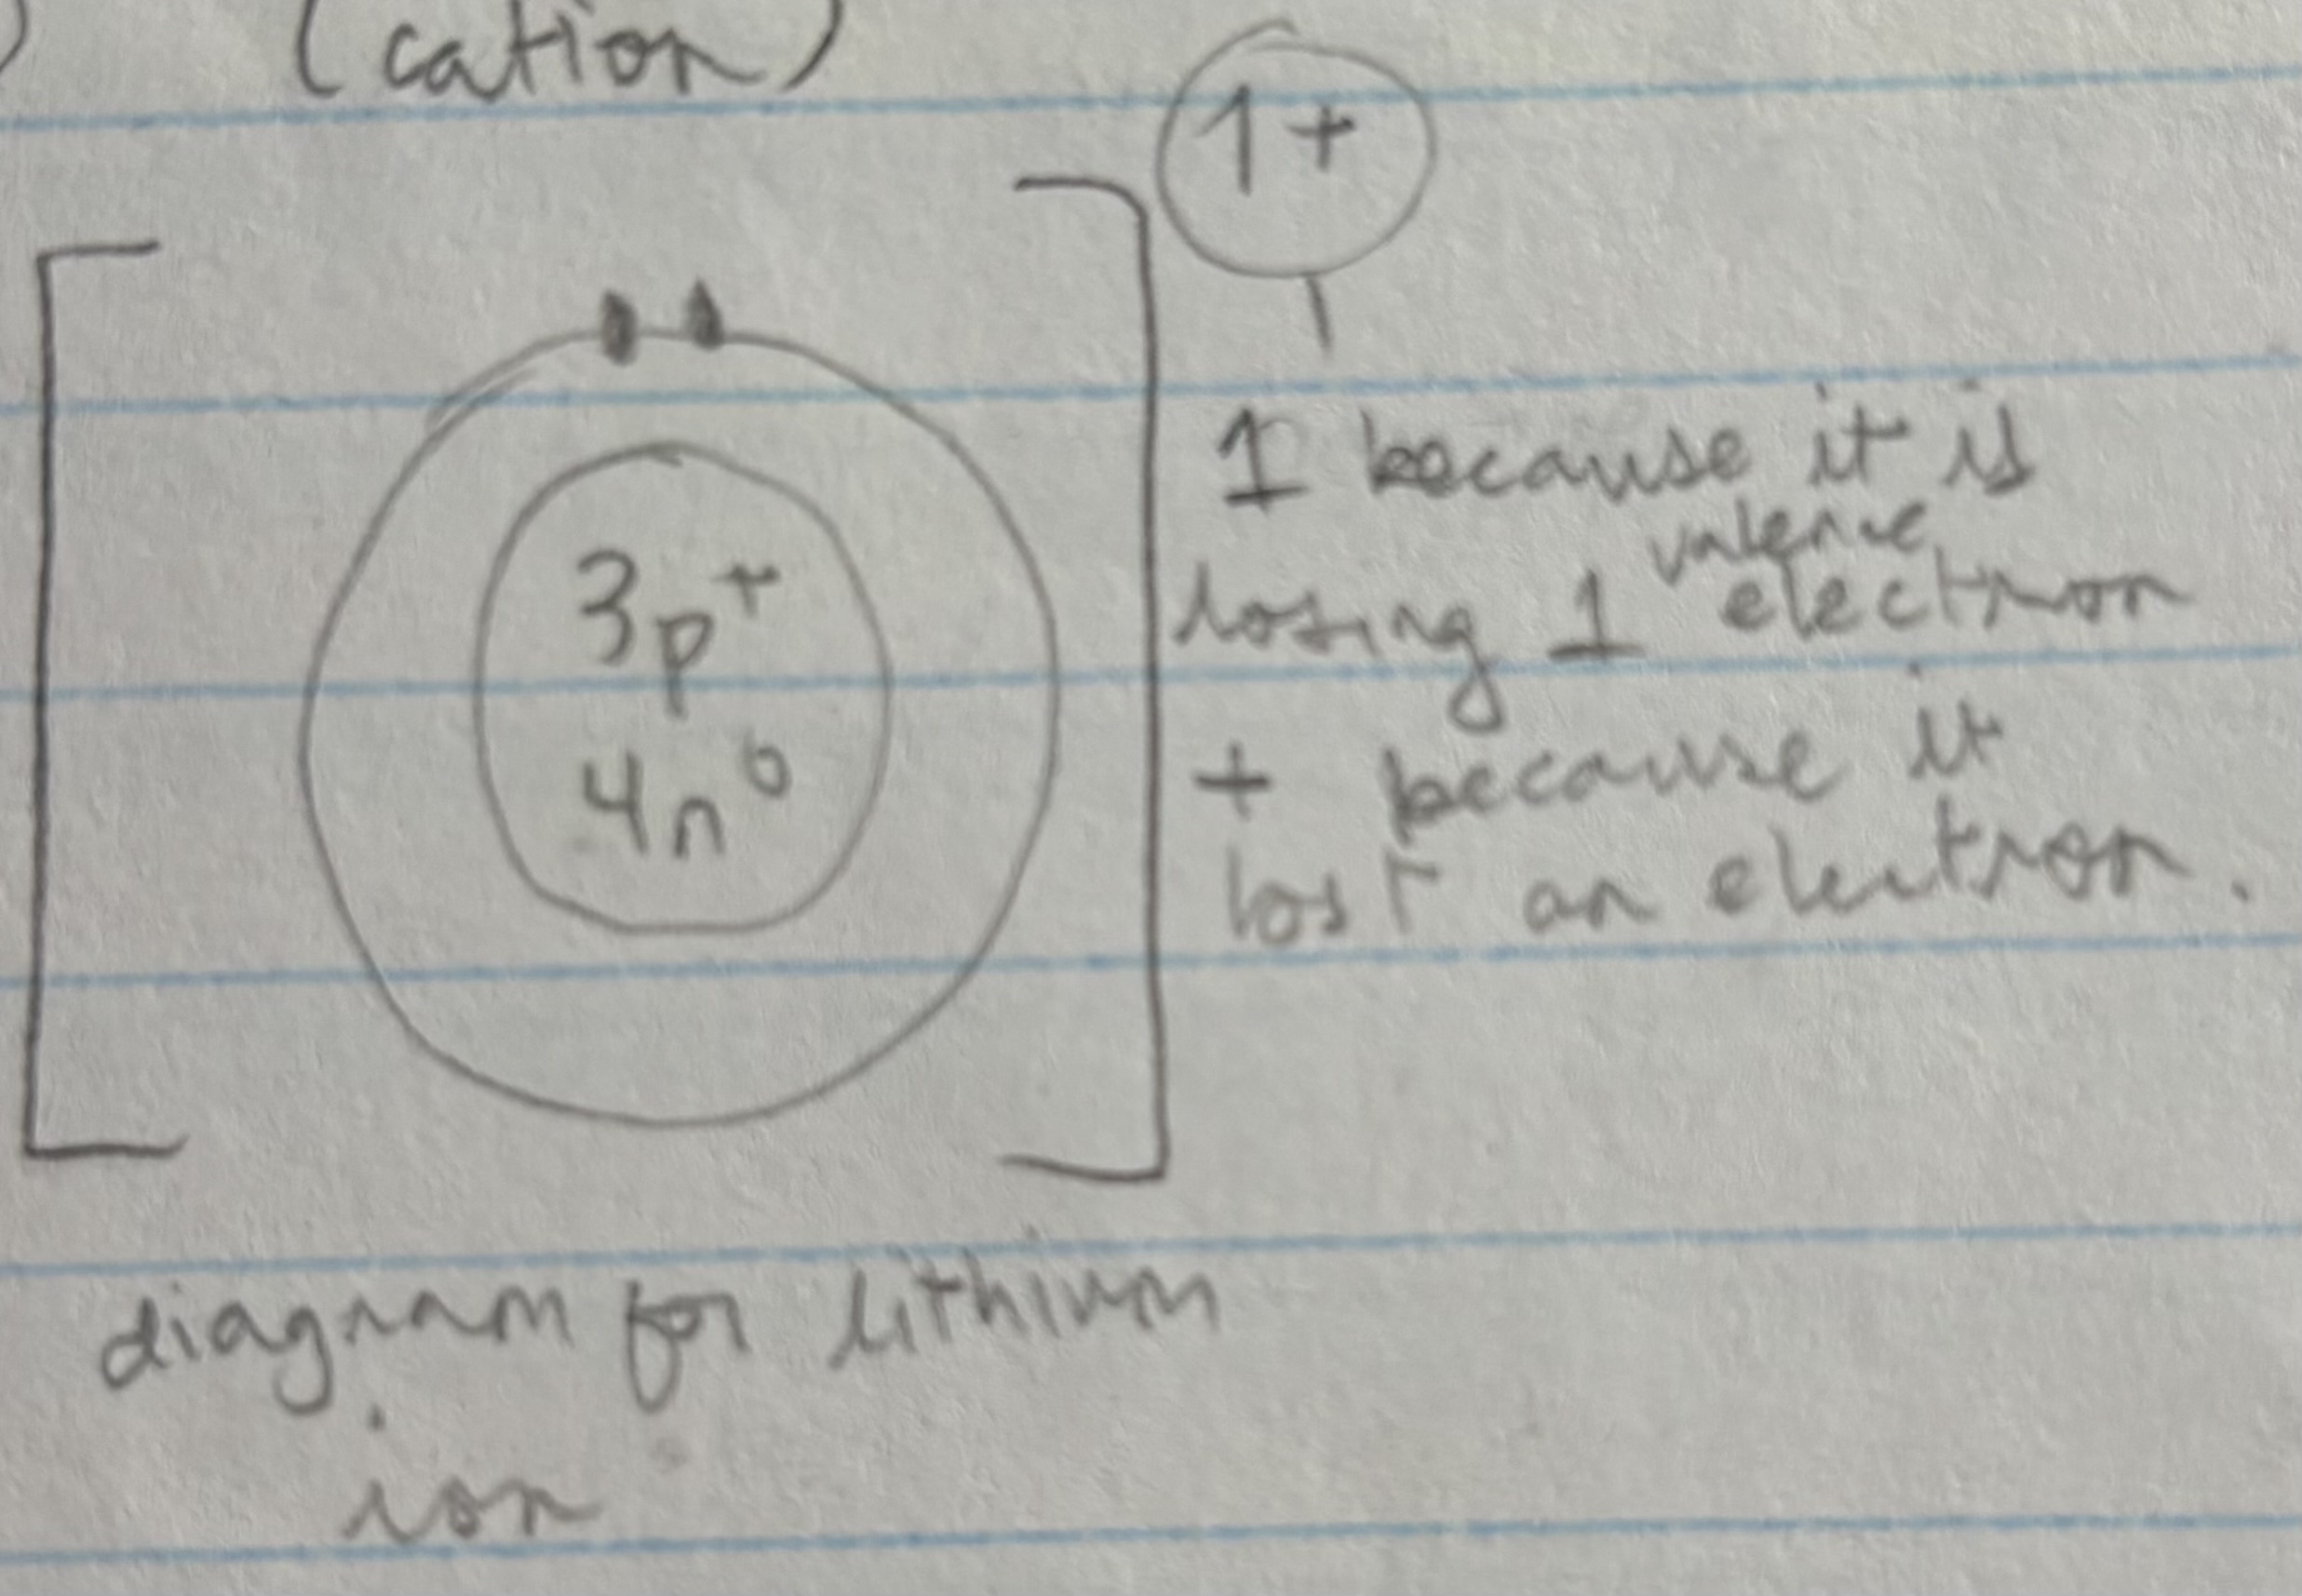 ) (cation)
1+
3p⁺
4n⁰
1 because it is
valence
losing 1 electron
+ because it
lost an electron.
diagram for lithium
ion